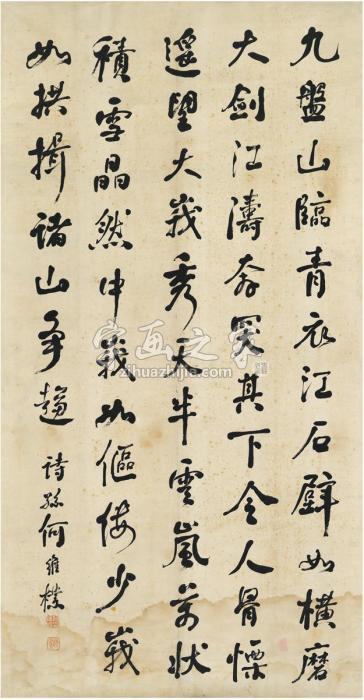 九盤山臨青衣江石壁如橫磨
大劍江濤奔罙其下令人骨慄
遥望大峩秀天半雲嵐萬狀
積雪晶然中峩如傴僂少峩
如拱揖諸山爭趨
詩孫何維樸
字画之家
zihuazhijia.com